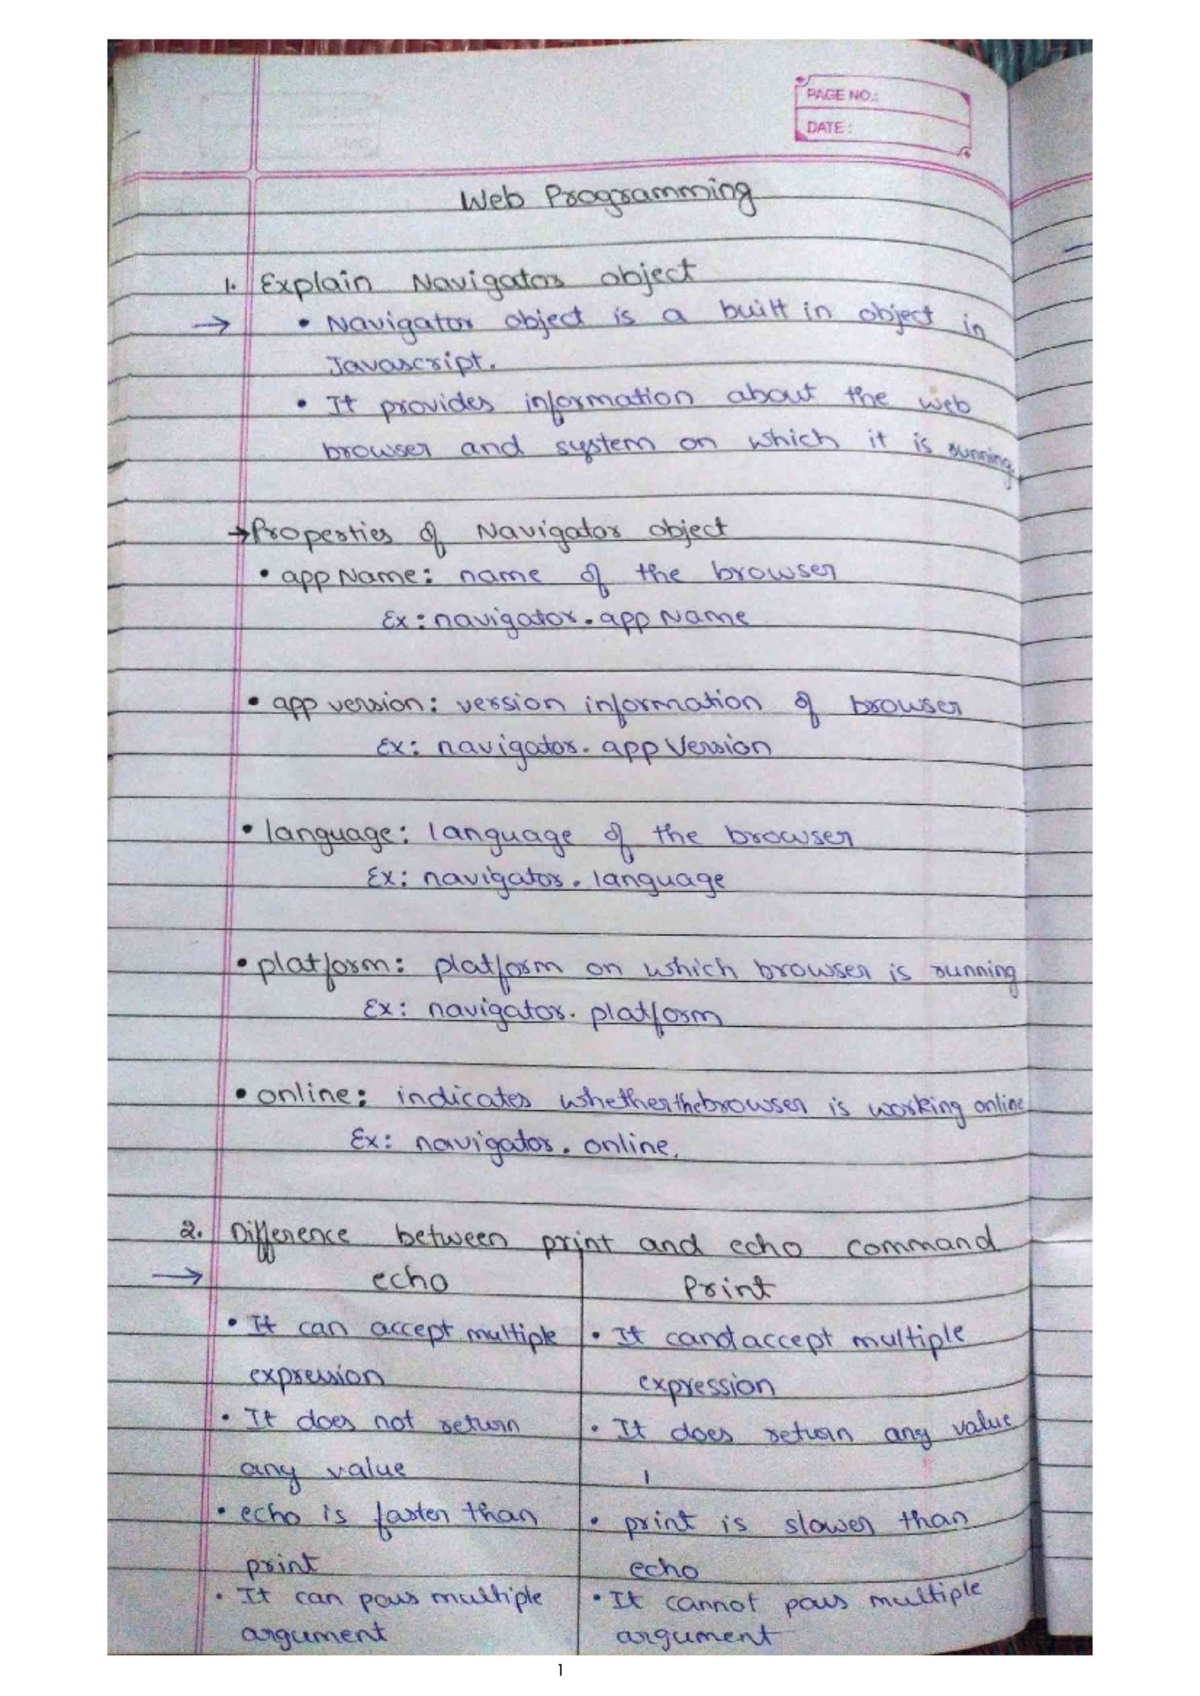 PAGE NO.:
DATE:
Web Programming
1. Explain Navigator object
→ • Navigator object is a built in object in
Javascript.
• It provides information about the web
browser and system on which it is running.
→ Properties of Navigator object
• appName: name of the browser
Ex: navigator.appName
• app version: version information of browser
Ex: navigator.appVersion
• language: language of the browser
Ex: navigator.language
• platform: platform on which browser is running
Ex: navigator.platform
• online: indicates whether the browser is working online
Ex: navigator.online.
2. Difference between print and echo command
→ echo
• It can accept multiple
expression
• It does not return
any value
• echo is faster than
print
• It can pass multiple
argument
Print
• It canot accept multiple
expression
• It does return any value
1
• print is slower than
echo
• It cannot pass multiple
argument
1